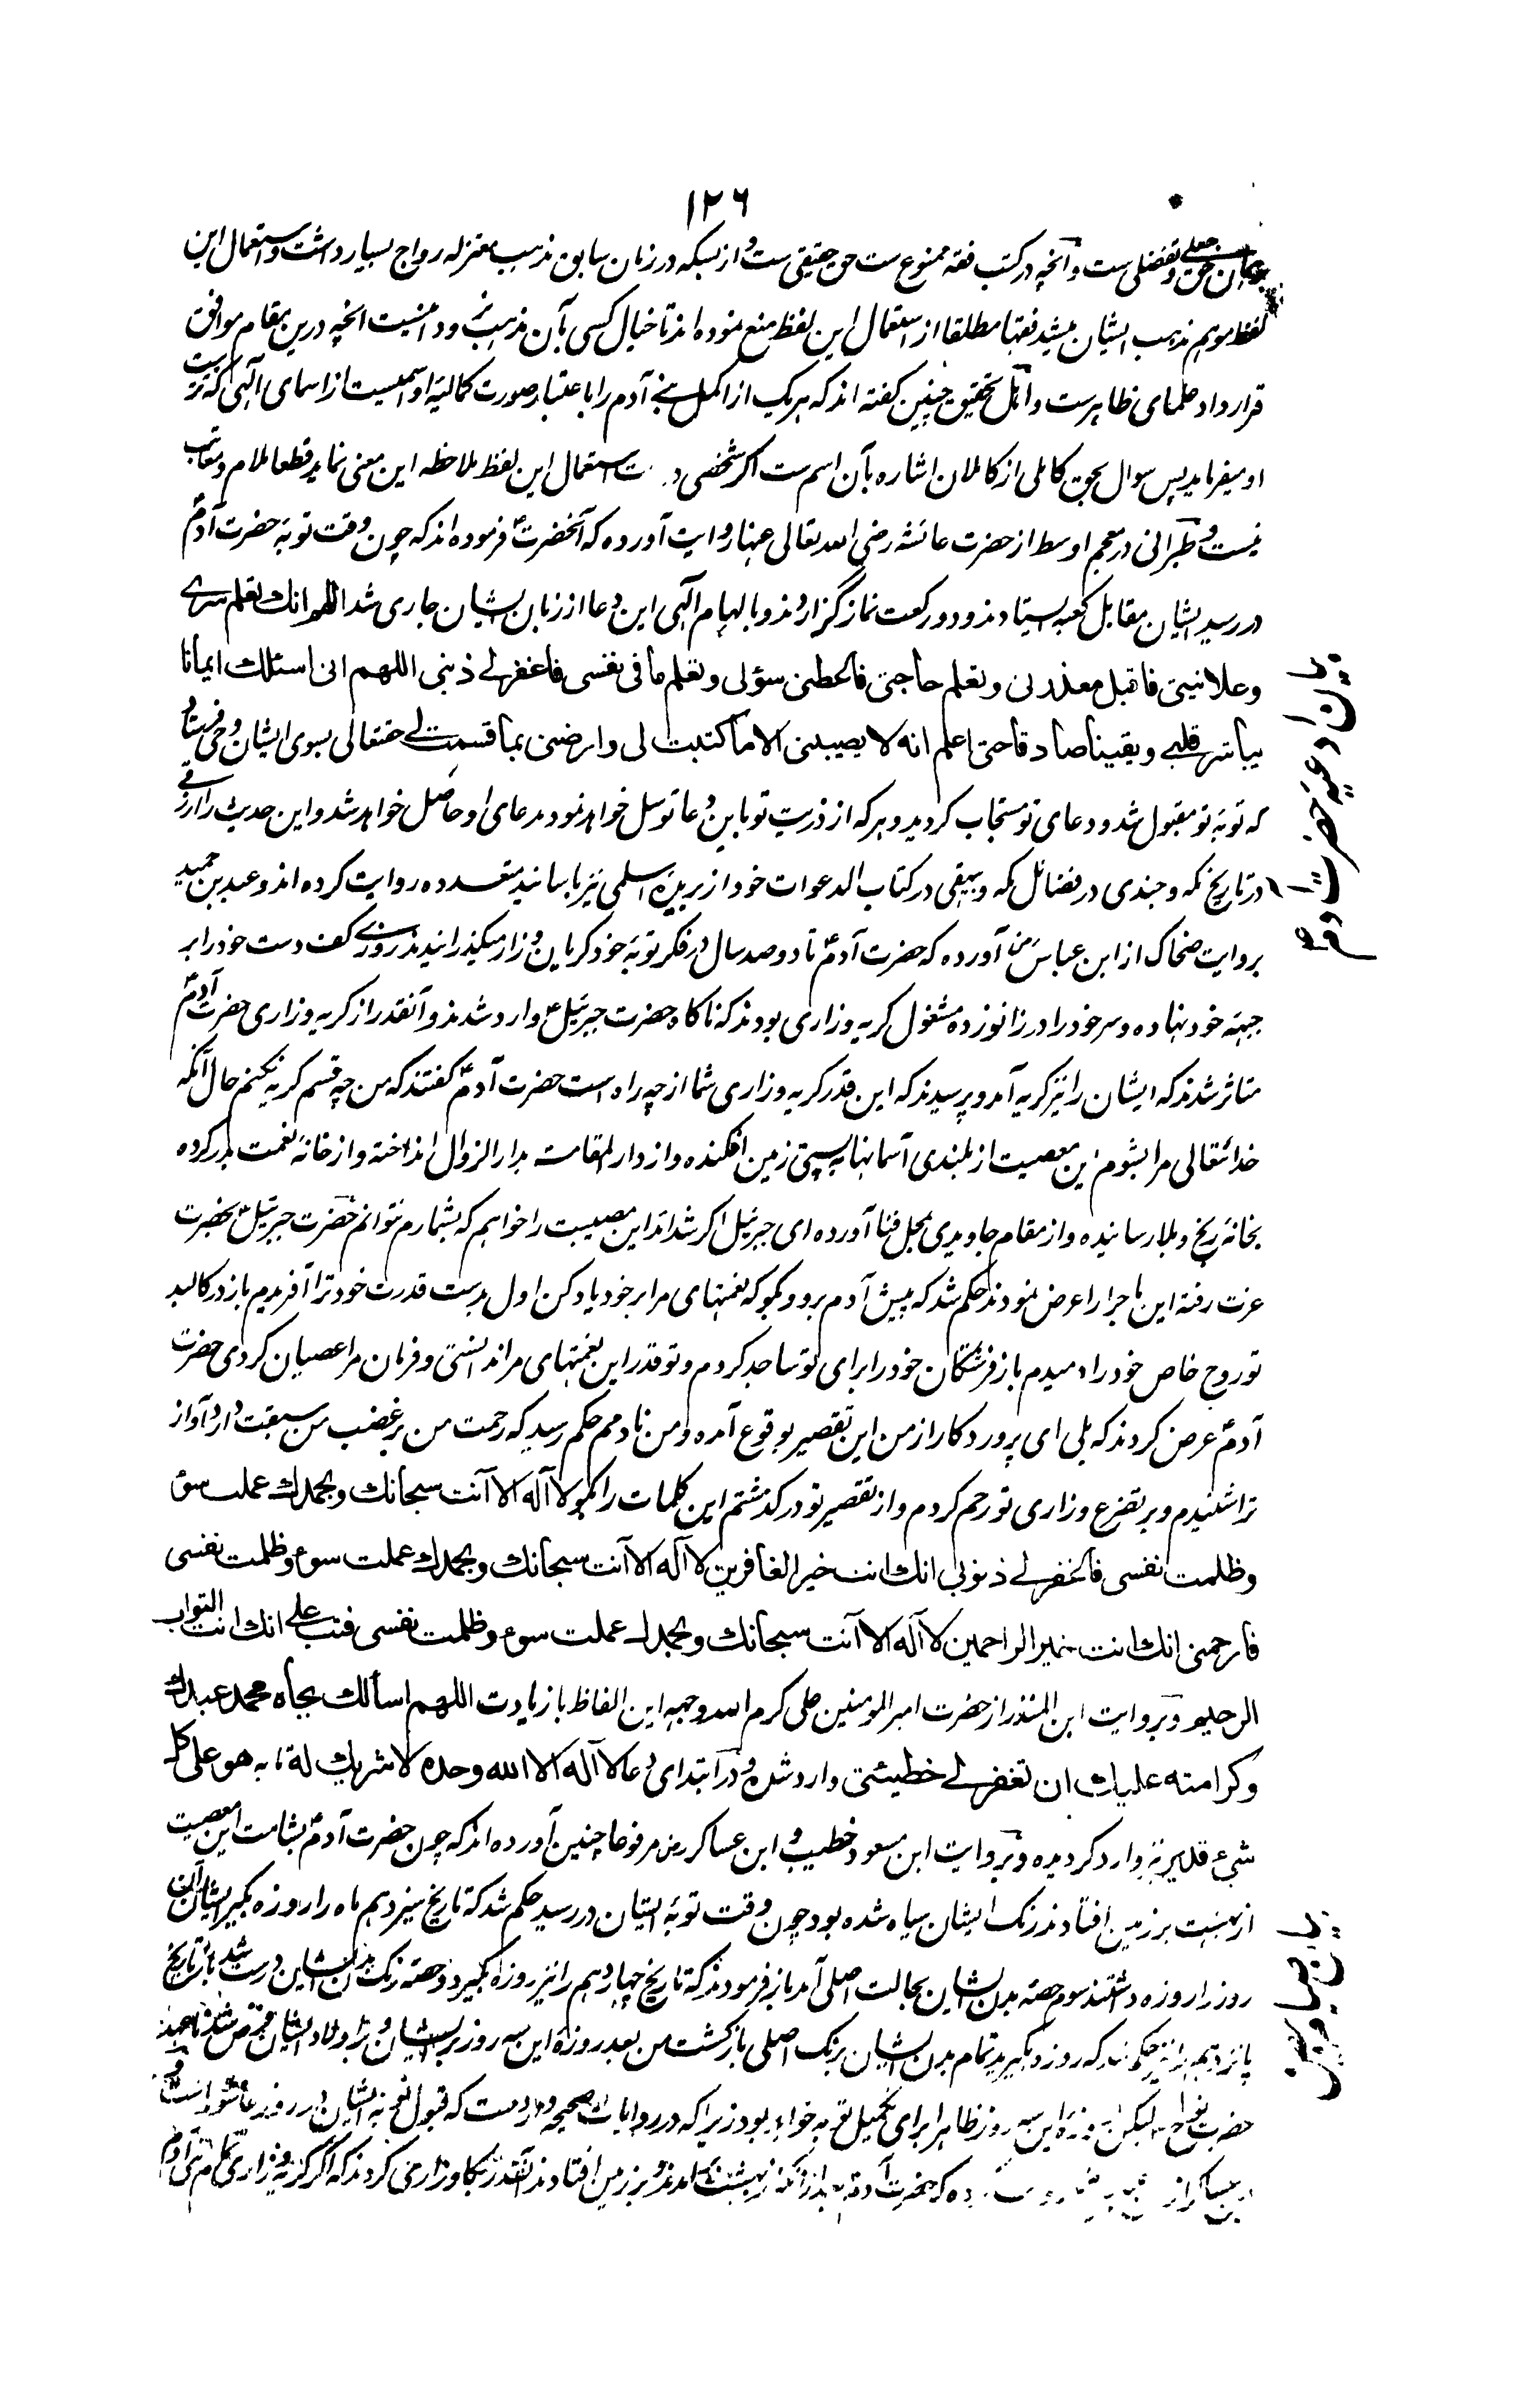 ۱۲۶
همان حق جعلی و تفضلی ست و آنچه در کتب فقه ممنوع ست حق حقیقی ست و از بسکه در زمان سابق مذهب معتزله رواج بسیار داشت و استعمال این
لفظ موهم مذهب ایشان میشد فقها مطلقا از استعمال این لفظ منع نموده اند تا خیال کسی بآن مذهب نرود اینست انچه درین مقام موافق
قرارداد علمای ظاهرست و اهل تحقیق چنین گفته اند که هریک از اکمل بنی آدم را باعتبار صورت کمالیه او اسمیست از اسمای الهی که تربیت
او میفرماید پس سوال بحق کاملی از کاملان اشاره بآن اسم ست اگر شخصی در استعمال این لفظ ملاحظه این معنی نماید قطعا ملام و معاتب
نیست و طبرانی در معجم اوسط از حضرت عائشه رضی الله تعالی عنها روایت آورده که آنحضرت فرموده اند که چون وقت توبه حضرت آدم
در رسید ایشان مقابل کعبه بایستادند و دو رکعت نماز گزاردند و بالهام الهی این دعا از زبان ایشان جاری شد اللهم انک تعلم سری
وعلانیتی فاقبل معذرتی وتعلم حاجتی فاعطنی سؤلی وتعلم ما فی نفسی فاغفر لی ذنبی اللهم انی اسئلک ایمانا
یباشر قلبی ویقینا صادقا حتی اعلم انه لا یصیبنی الا ما کتبت لی وارضنی بما قسمت لی حقتعالی بسوی ایشان وحی فرستاد
که توبه تو مقبول شد و دعای تو مستجاب گردید و هر که از ذریت تو باین دعا توسل خواهد نمود مدعای او حاصل خواهد شد و این حدیث را ازرقی
در تاریخ مکه و جندی در فضائل مکه و بیهقی در کتاب الدعوات خود از بریده اسلمی نیز باسانید متعدده روایت کرده اند و عبد بن حمید
بروایت ضحاک از ابن عباس رض آورده که حضرت آدم تا دو صد سال در فکر توبه خود گریان و زار میگذرانیدند روزی کف دست خود را بر
جبهه خود نهاده و سر خود را در زانو زده مشغول گریه و زاری بودند که ناگاه حضرت جبرئیل وارد شدند و آنقدر از گریه و زاری حضرت آدم
متاثر شدند که ایشان را نیز گریه آمد و پرسیدند که این قدر گریه و زاری شما از چه راه است حضرت آدم گفتند که من چه قسم گریه نکنم حال آنکه
خدائتعالی مرا بشوم این معصیت از بلندی آسمانها به پستی زمین افکنده و از دار المقامت بدار الزوال انداخته و از خانه نعمت بدر کرده
بخانه رنج و بلا رسانیده و از مقام جاویدی بمحل فنا آورده ای جبرئیل اگر شدائد این مصیبت را خواهم که بشمارم نتوانم حضرت جبرئیل بحضرت
عزت رفته این ماجرا را عرض نمودند حکم شد که پیش آدم برو و بگو که نعمتهای مرا بر خود یاد کن اول بدست قدرت خود ترا آفریدم باز در کالبد
تو روح خاص خود را دمیدم باز فرشتگان خود را برای تو ساجد کردم و تو قدر این نعمتهای مرا ندانستی و فرمان مرا عصیان کردی حضرت
آدم عرض کردند که بلی ای پروردگار از من این تقصیر بوقوع آمده و من نادمم حکم رسید که رحمت من بر غضب من سبقت دارد آواز
ترا شنیدم و بر تضرع و زاری تو رحم کردم و از تقصیر تو در گذشتم این کلمات را بگو لا آله الا آنت سبحانک وبحمدک عملت سوء
وظلمت نفسی فاغفر لی ذنوبی انک انت خیر الغافرین لا آله الا آنت سبحانک وبحمدک عملت سوء وظلمت نفسی
فارحمنی انک انت خیر الراحمین لا آله الا آنت سبحانک وبحمدک عملت سوء وظلمت نفسی فتب علی انک انت التواب
الرحیم و بروایت ابن المنذر از حضرت امیر المومنین علی کرم الله وجهه این الفاظ با زیادت اللهم اسألک بجاه محمد عبدک
وکرامته علیک ان تغفر لی خطیئتی وارد شده و در ابتدای دعا لا آله الا الله وحده لا شریک له هو علی کل
شیء قدیر نیز وارد گردیده و بروایت ابن مسعود خطیب و ابن عساکر رض مرفوعا چنین آورده اند که چون حضرت آدم بشامت این معصیت
از بهشت بر زمین افتادند رنگ ایشان سیاه شده بود چون وقت توبه ایشان در رسید حکم شد که تاریخ سیزدهم ماه را روزه بگیر ایشان آن
روز را روزه داشتند سوم حصه بدن ایشان بحالت اصلی آمد باز فرمودند که تاریخ چهاردهم را نیز روزه بگیر دو حصه رنگ بدن ایشان درست شد باز تاریخ
پانزدهم حکم شد که روزه بگیرید تمام بدن ایشان برنگ اصلی باز گشت من بعد روزه این سه روز بر ایشان و بر اولاد ایشان مفترض شد تا عهد
حضرت نوح لیکن روزه این سه روز ظاهرا برای تکمیل توبه خواهد بود زیرا که در روایات صحیحه وارد ست که قبول توبه ایشان در روز عاشورا است
که حضرت آدم بعد از آنکه از بهشت آمدند و بر زمین افتادند آنقدر بکا و زاری کردند که اگر گریه و زاری تمام بنی آدم
بیان ادعیه حضرت آدم